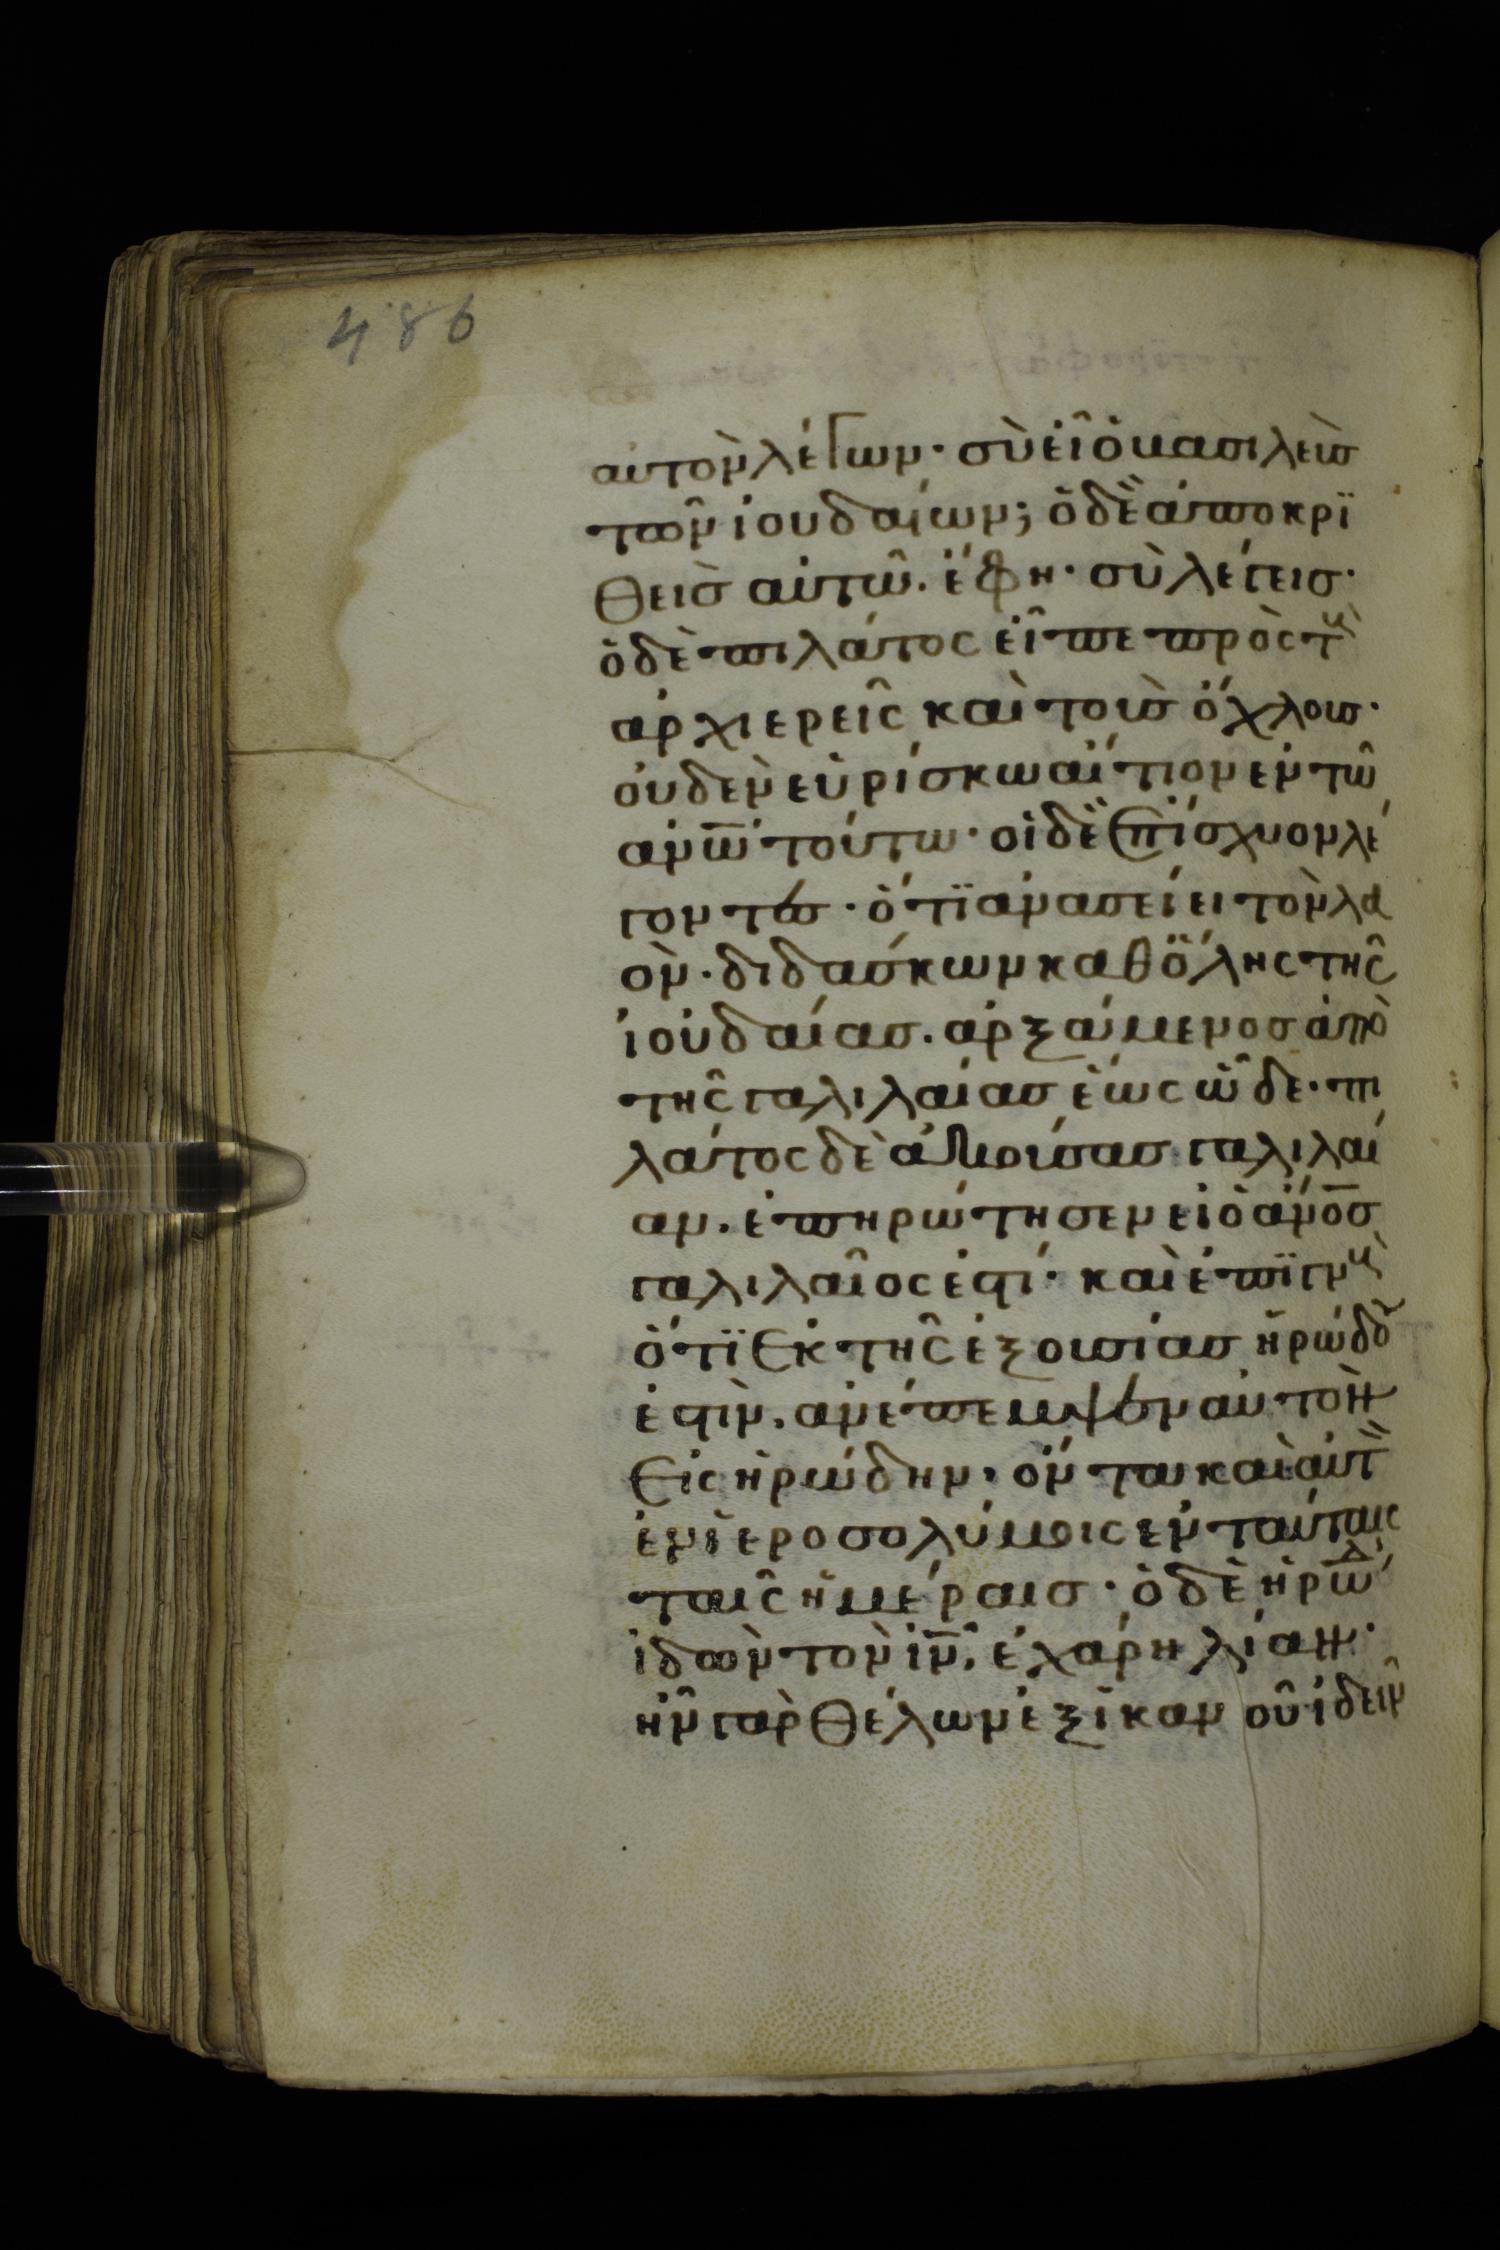 486
αὐτὸν λέγων· σὺ εἶ ὁ βασιλεὺς
τῶν ἰουδαίων; ὁ δὲ ἀποκρϊ
θεὶς αὐτῶ. ἔφη· σὺ λέγεις·
ὁ δὲ πιλάτος εἶπε πρὸς τοὺς
ἀρχιερεῖς καὶ τοὺς ὄχλους·
οὐδὲν εὑρίσκω αἴτιον ἐν τῶ
ἀνω̅ τούτω· οἱ δὲ ἐπίσχυον λέ
γοντες· ὅτϊ ἀνασείει τὸν λα
ὸν· διδάσκων καθ ὅλης τῆς
ἰουδαίας. ἀρξάμενος ἀπὸ
τῆς γαλιλαίας ἕως ὧδε· πι
λάτος δὲ ἀκούσας γαλιλαί
αν. ἐπηρώτησεν εἰ ὁ ἄνο̅ς
γαλιλαῖος ἐστί· καὶ ἐπϊγνοὺς
ὅτϊ ἐκ τῆς ἐξουσίας ἡρώδου
ἐστὶν, ἀνέπεμψεν αὐτὸν
εἰς ἡρώδην, ὄντα καὶ αὐτ
ἐν ἱεροσολύμοις ἐν ταύταις
ταῖς ἡμέραις· ὁ δὲ ἡρώδ
ἰδὼν τὸν ἰν̅, ἐχάρη λίαν·
ἦν γὰρ θέλων ἐξ ἱκανοῦ ἰδεῖν